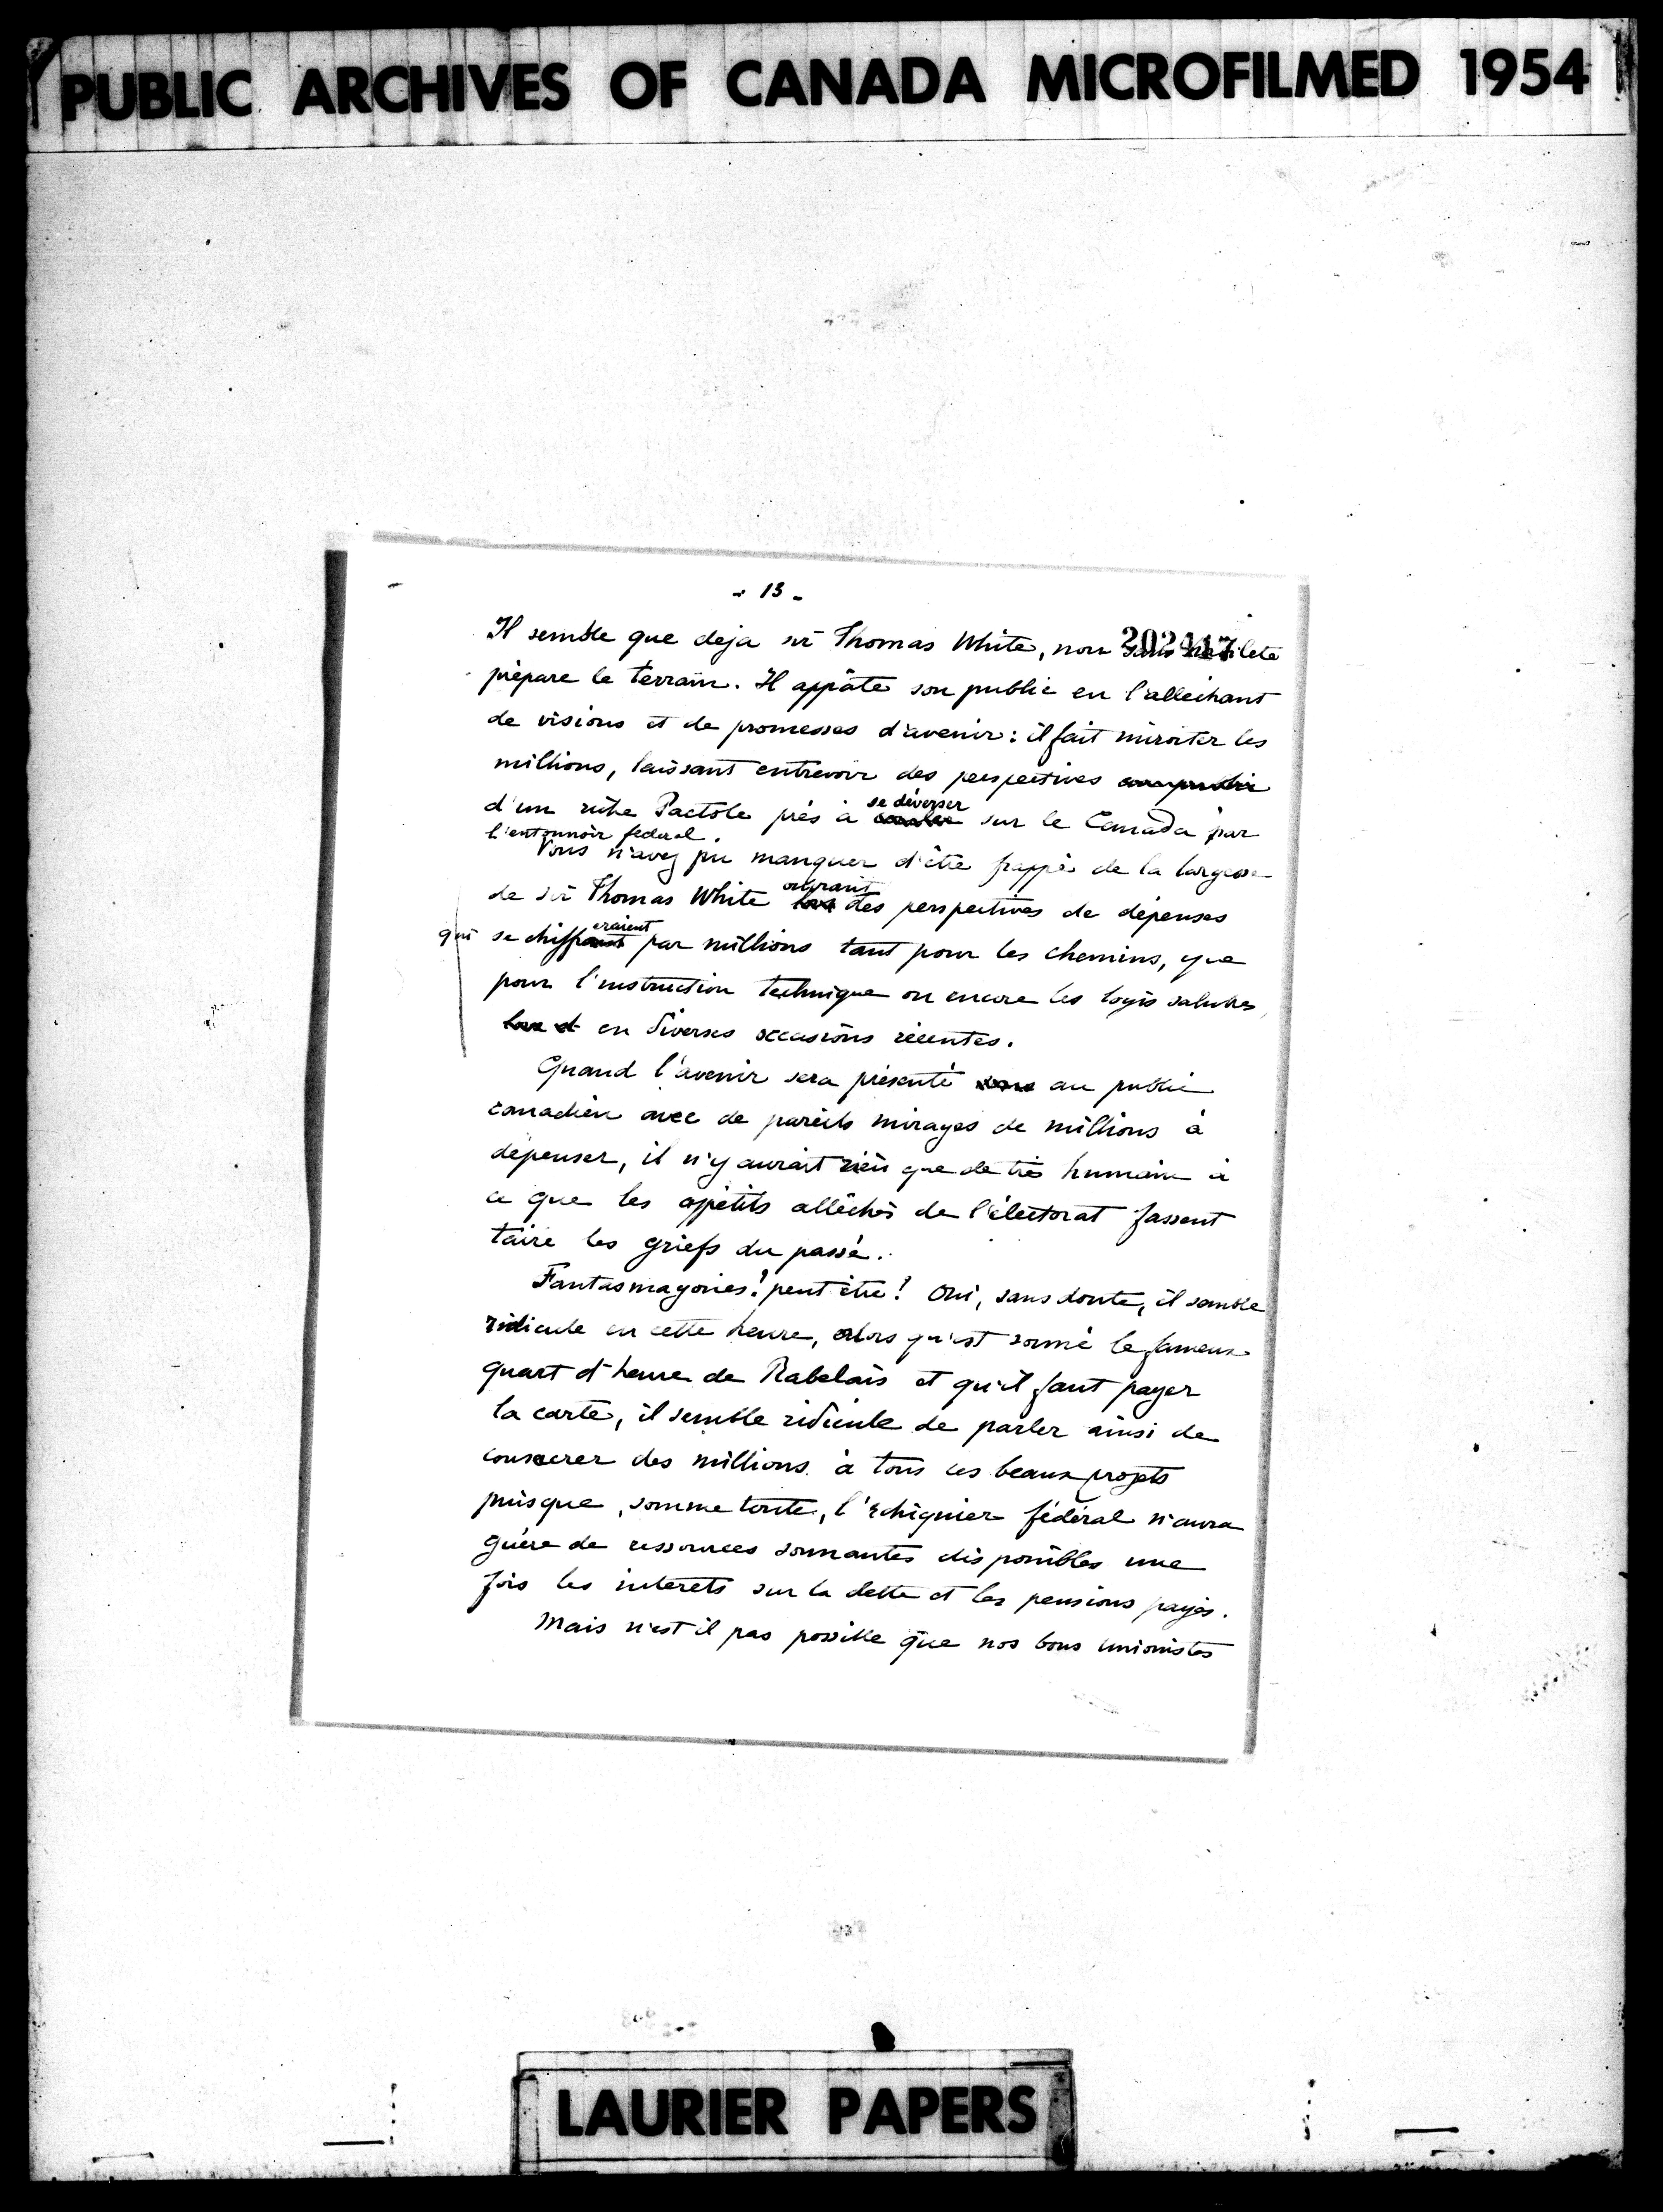 PUBLIC ARCHIVES OF CANADA MICROFILMED 1954
- 13 -
202417
Il semble que deja sir Thomas White, non sans habileté
prépare le terrain. Il appâte son public en l'alléchant
de visions et de promesses d'avenir : il fait miroiter les
millions, laissant entrevoir des perspectives
d'un riche Pactole près à se déverser sur le Canada par
l'entonnoir federal.
Vous n'avez pu manquer d'être frappé de la largesse
de sir Thomas White ouvrant des perspectives de dépenses
qui se chiffreraient par millions tant pour les chemins, que
pour l'instruction technique ou encore les logis salubres
en diverses occasions récentes.
Quand l'avenir sera présenté au public
canadien avec de pareils mirages de millions à
dépenser, il n'y aurait rien que de très humain à
ce que les appétits alléchés de l'électorat fassent
taire les griefs du passé.
Fantasmagories? peut être! Oui, sans doute, il semble
ridicule en cette heure, alors qu'est sonné le fameux
quart d'heure de Rabelais et qu'il faut payer
la carte, il semble ridicule de parler ainsi de
consacrer des millions à tous ces beaux projets
puisque, somme toute, l'échiquier fédéral n'aura
guère de ressources sonnantes disponibles une
fois les interets sur la dette et les pensions payés.
Mais n'est il pas possible que nos bons unionistes
LAURIER PAPERS